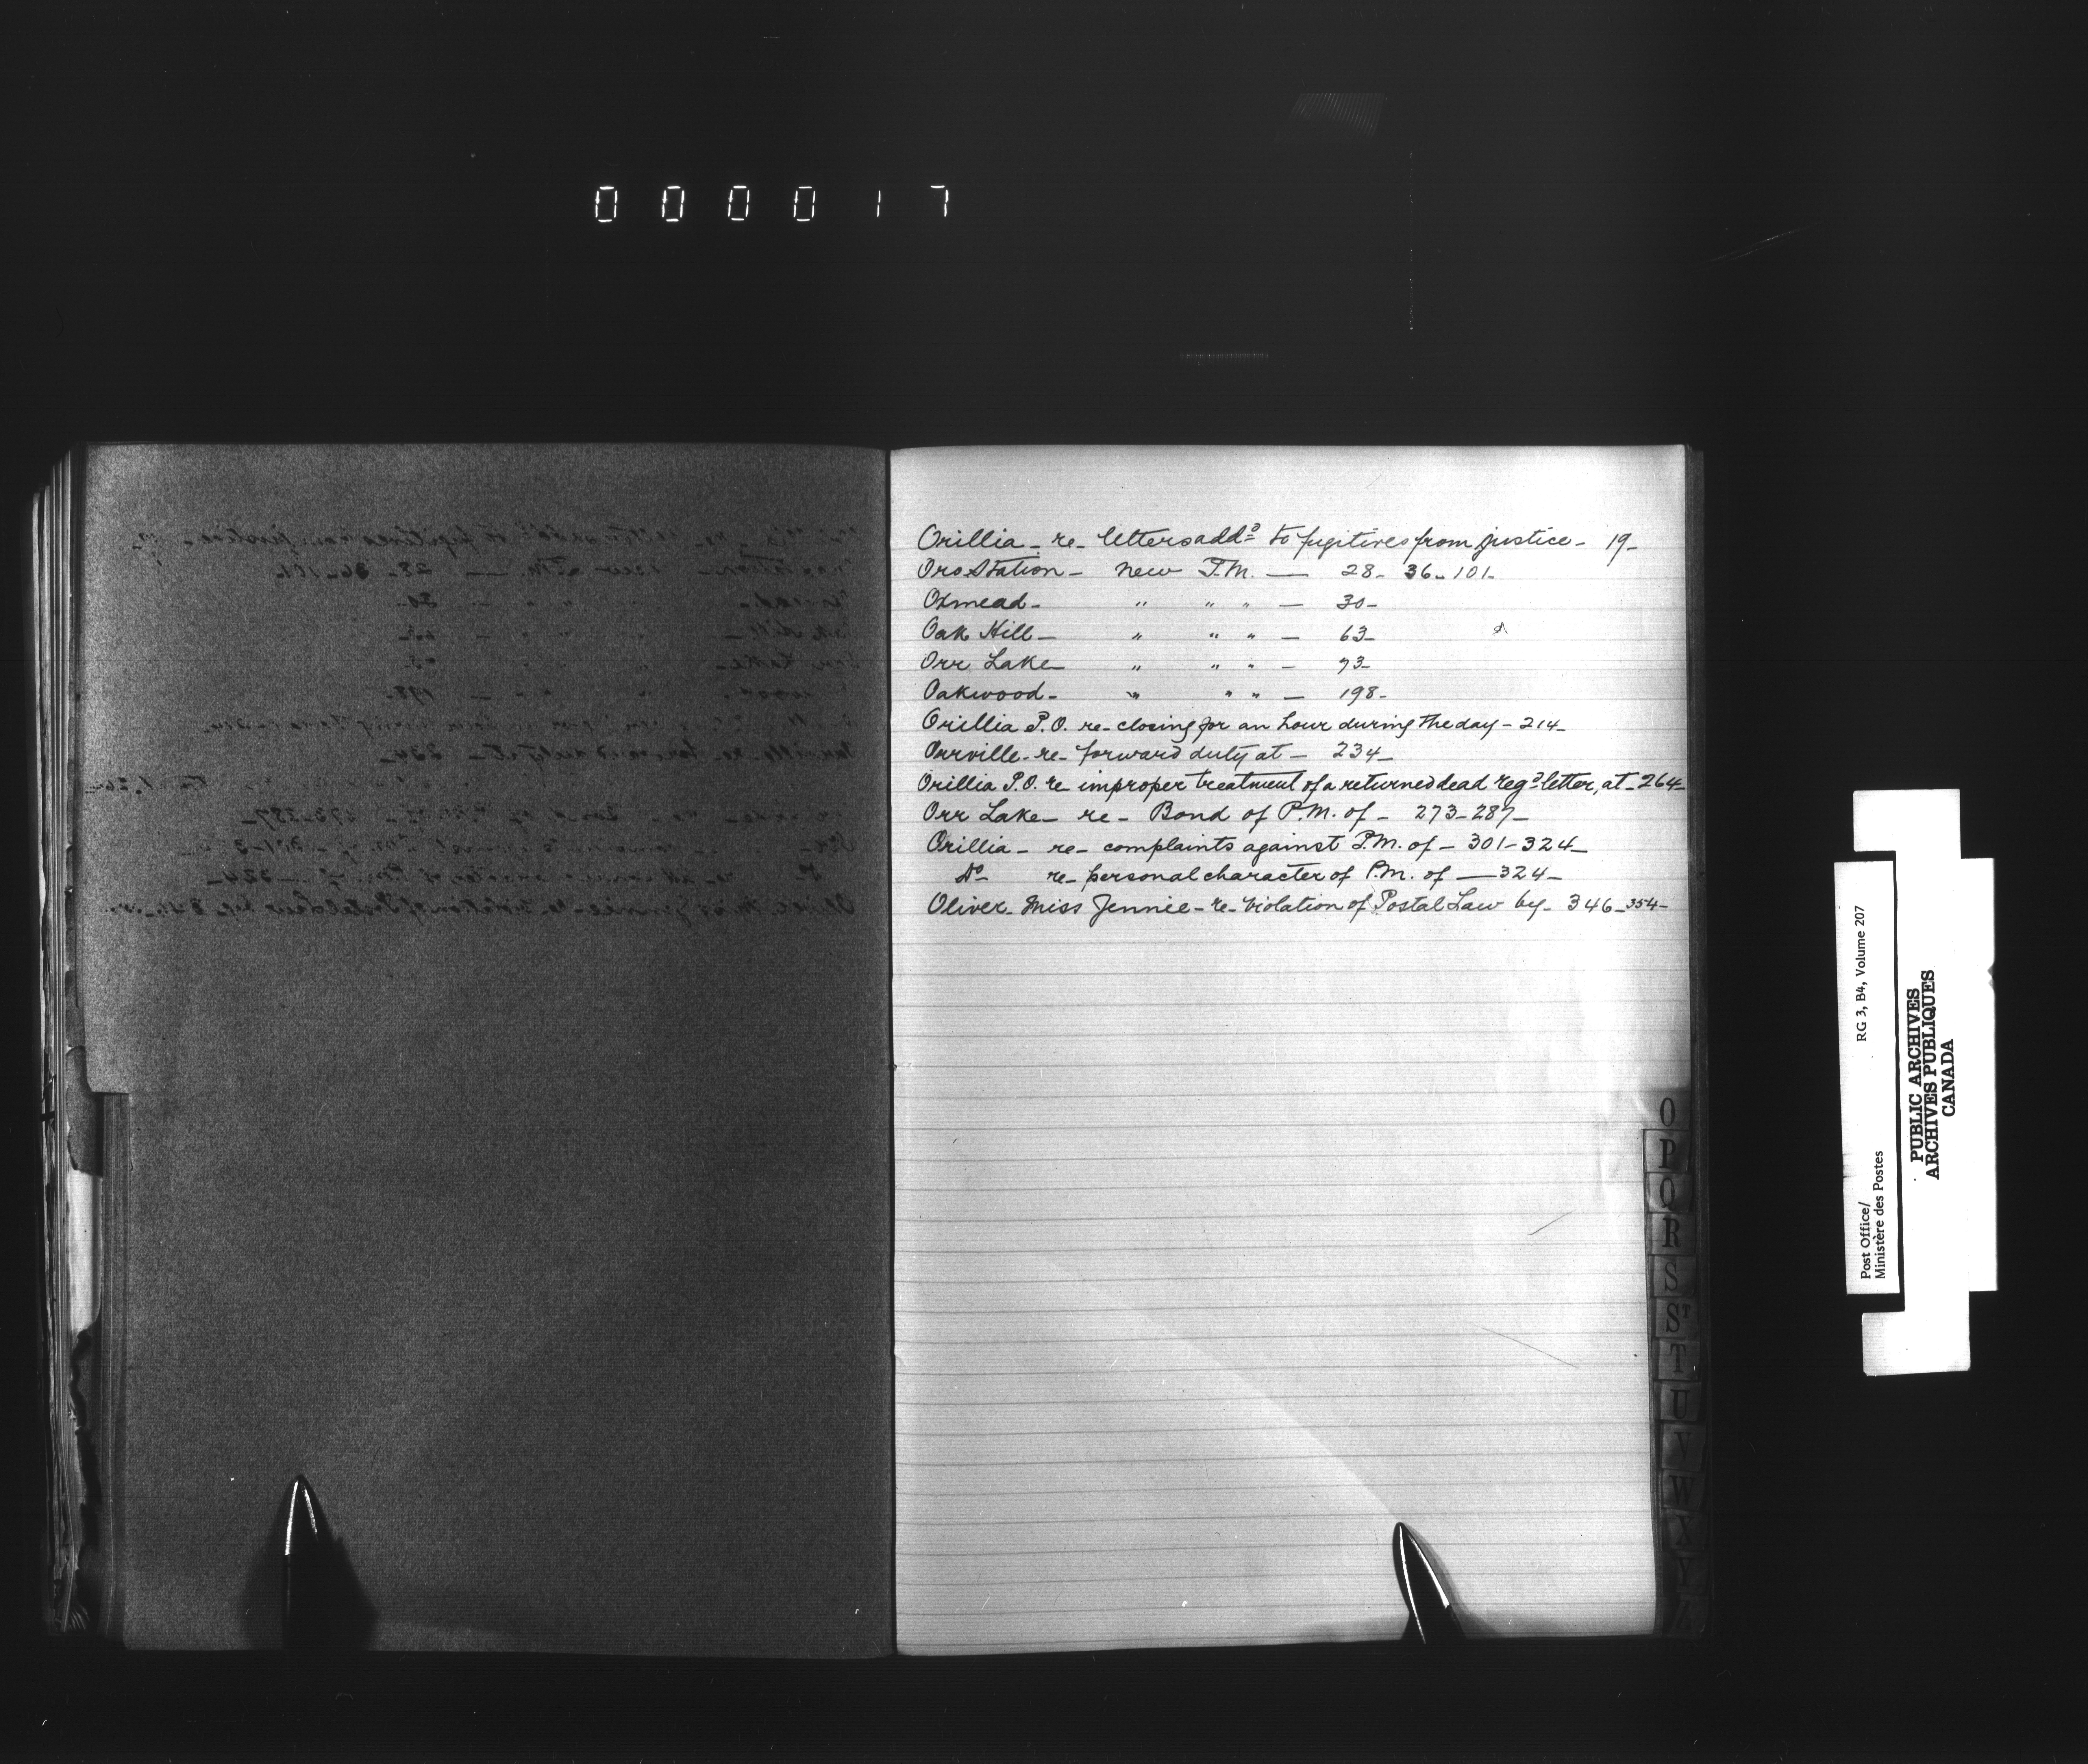 000017
Orillia - re - letters addd to fugitives from justice - 19 -
Oro Station - new P.M. — 28 - 36 - 101 -
Oxmead - " " " — 30 -
Oak Hill - " " " — 63 -
Orr Lake " " " — 73 -
Oakwood - " " " — 198 -
Orillia P.O. re - closing for an hour during the day - 214 -
Orrville - re - forward duty at - 234 -
Orillia P.O. re improper treatment of a returned dead regd letter, at - 264 -
Orr Lake - re - Bond of P.M. of - 273 - 287 -
Orillia - re - complaints against P.M. of - 301 - 324 -
Do - re - personal character of P.M. of — 324 -
Oliver - Miss Jennie - re - violation of Postal Law by - 346 - 354 -
O
P
Q
R
S
ST
T
U
V
W
X
Y
Z
Post Office/ RG 3, B4, Volume 207
Ministère des Postes
PUBLIC ARCHIVES
ARCHIVES PUBLIQUES
CANADA